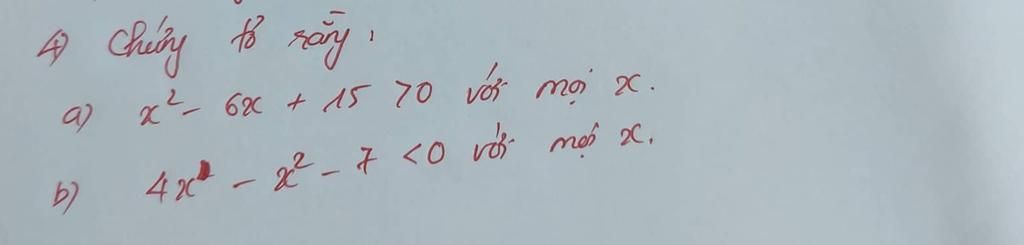 4) Chứng tỏ rằng:
a) x² - 6x + 15 > 0 với mọi x.
b) 4x - x² - 7 < 0 với mọi x.